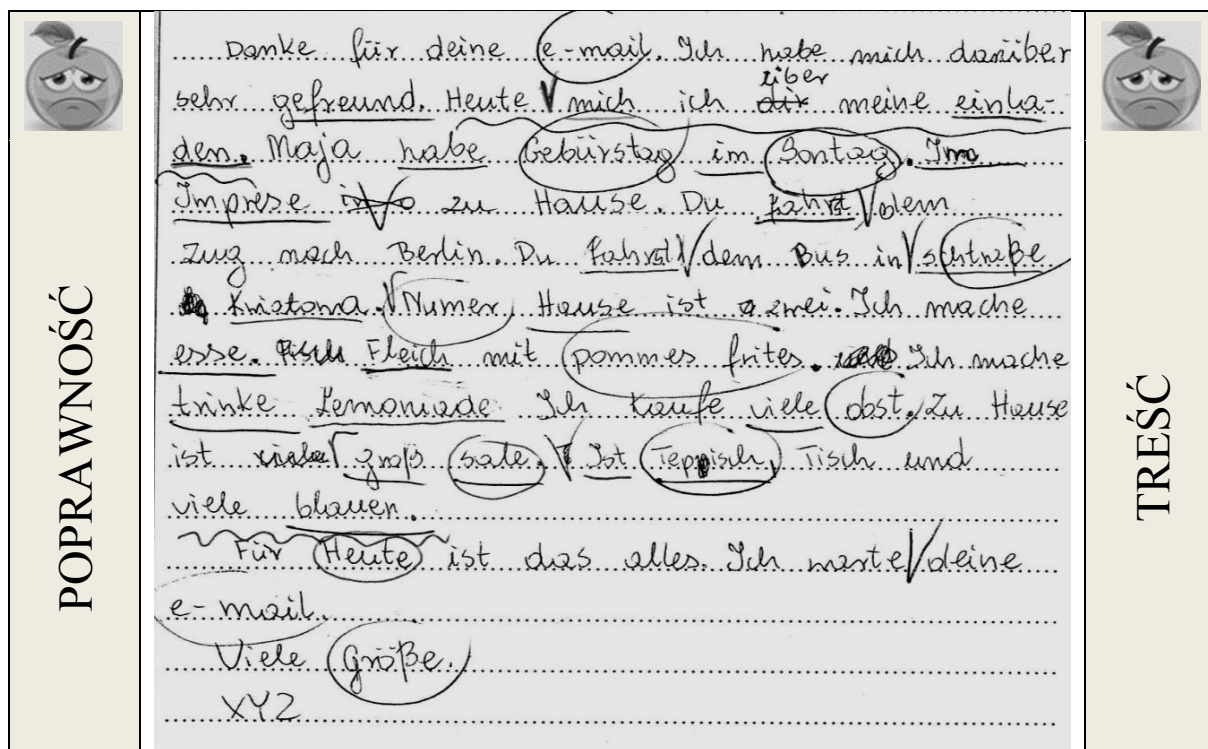 POPRAWNOŚĆ
Danke für deine e-mail. Ich habe mich darüber
über
sehr gefreund. Heute mich ich dir meine einla-
den. Maja habe Gebürstag im Sontag. Im
Imprese zu Hause. Du fahrst dem
Zug nach Berlin. Du fahrst dem Bus in schtraße
Kwiatowa. Numer Hause ist zwei. Ich mache
esse. Fisch Fleich mit pommes frites. Ich mache
trinke Lemoniade Ich kaufe viele obst. Zu Hause
ist groß sale. Ist Teppisch, Tisch und
viele blauen.
Für Heute ist das alles. Ich warte deine
e-mail.
Viele Größe.
XYZ
TREŚĆ